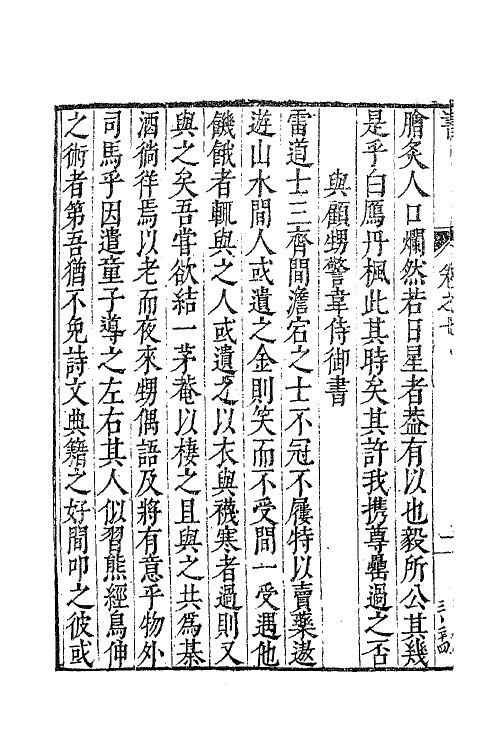 膾炙人口爛然若日星者葢有以也毅所公其幾
是乎白鴈丹楓此其時矣其許我携尊罍過之否
與顧甥警韋侍御書
雷道士三齊間澹宕之士不冠不屨特以賣藥遨
遊山水間人或遺之金則笑而不受間一受遇他
饑餓者輒與之人或遺之以衣與襪寒者過則又
與之矣吾嘗欲結一茅菴以棲之且與之共為棊
酒徜徉焉以老而夜來甥偶語及將有意乎物外
司馬乎因遣童子導之左右其人似習熊經鳥伸
之術者第吾猶不免詩文典籍之好間叩之彼或